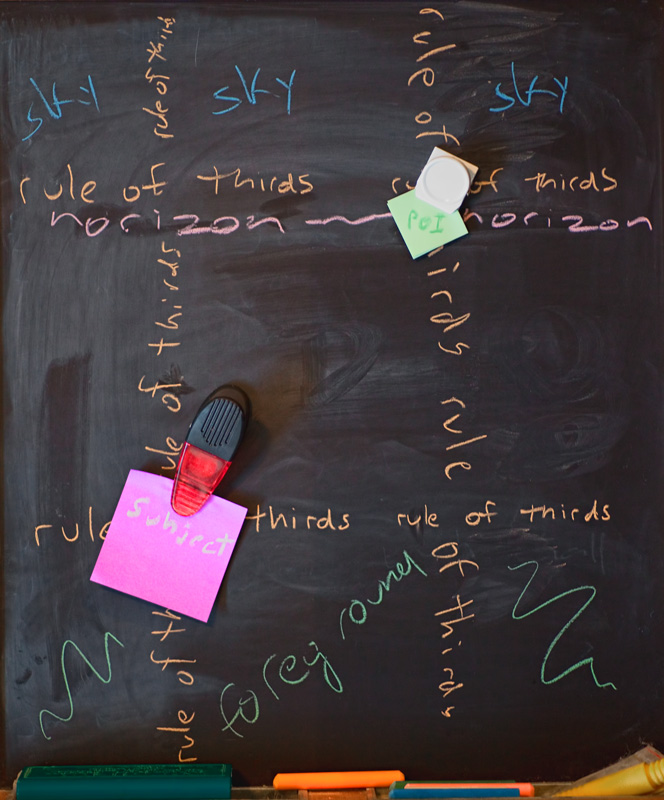 sky sky sky
rule of thirds
rule of thirds
horizon horizon
POI
subject
rule thirds
rule of thirds
foreground
rule of th ule of thirds rule of thirds
rule of irds rule of thirds